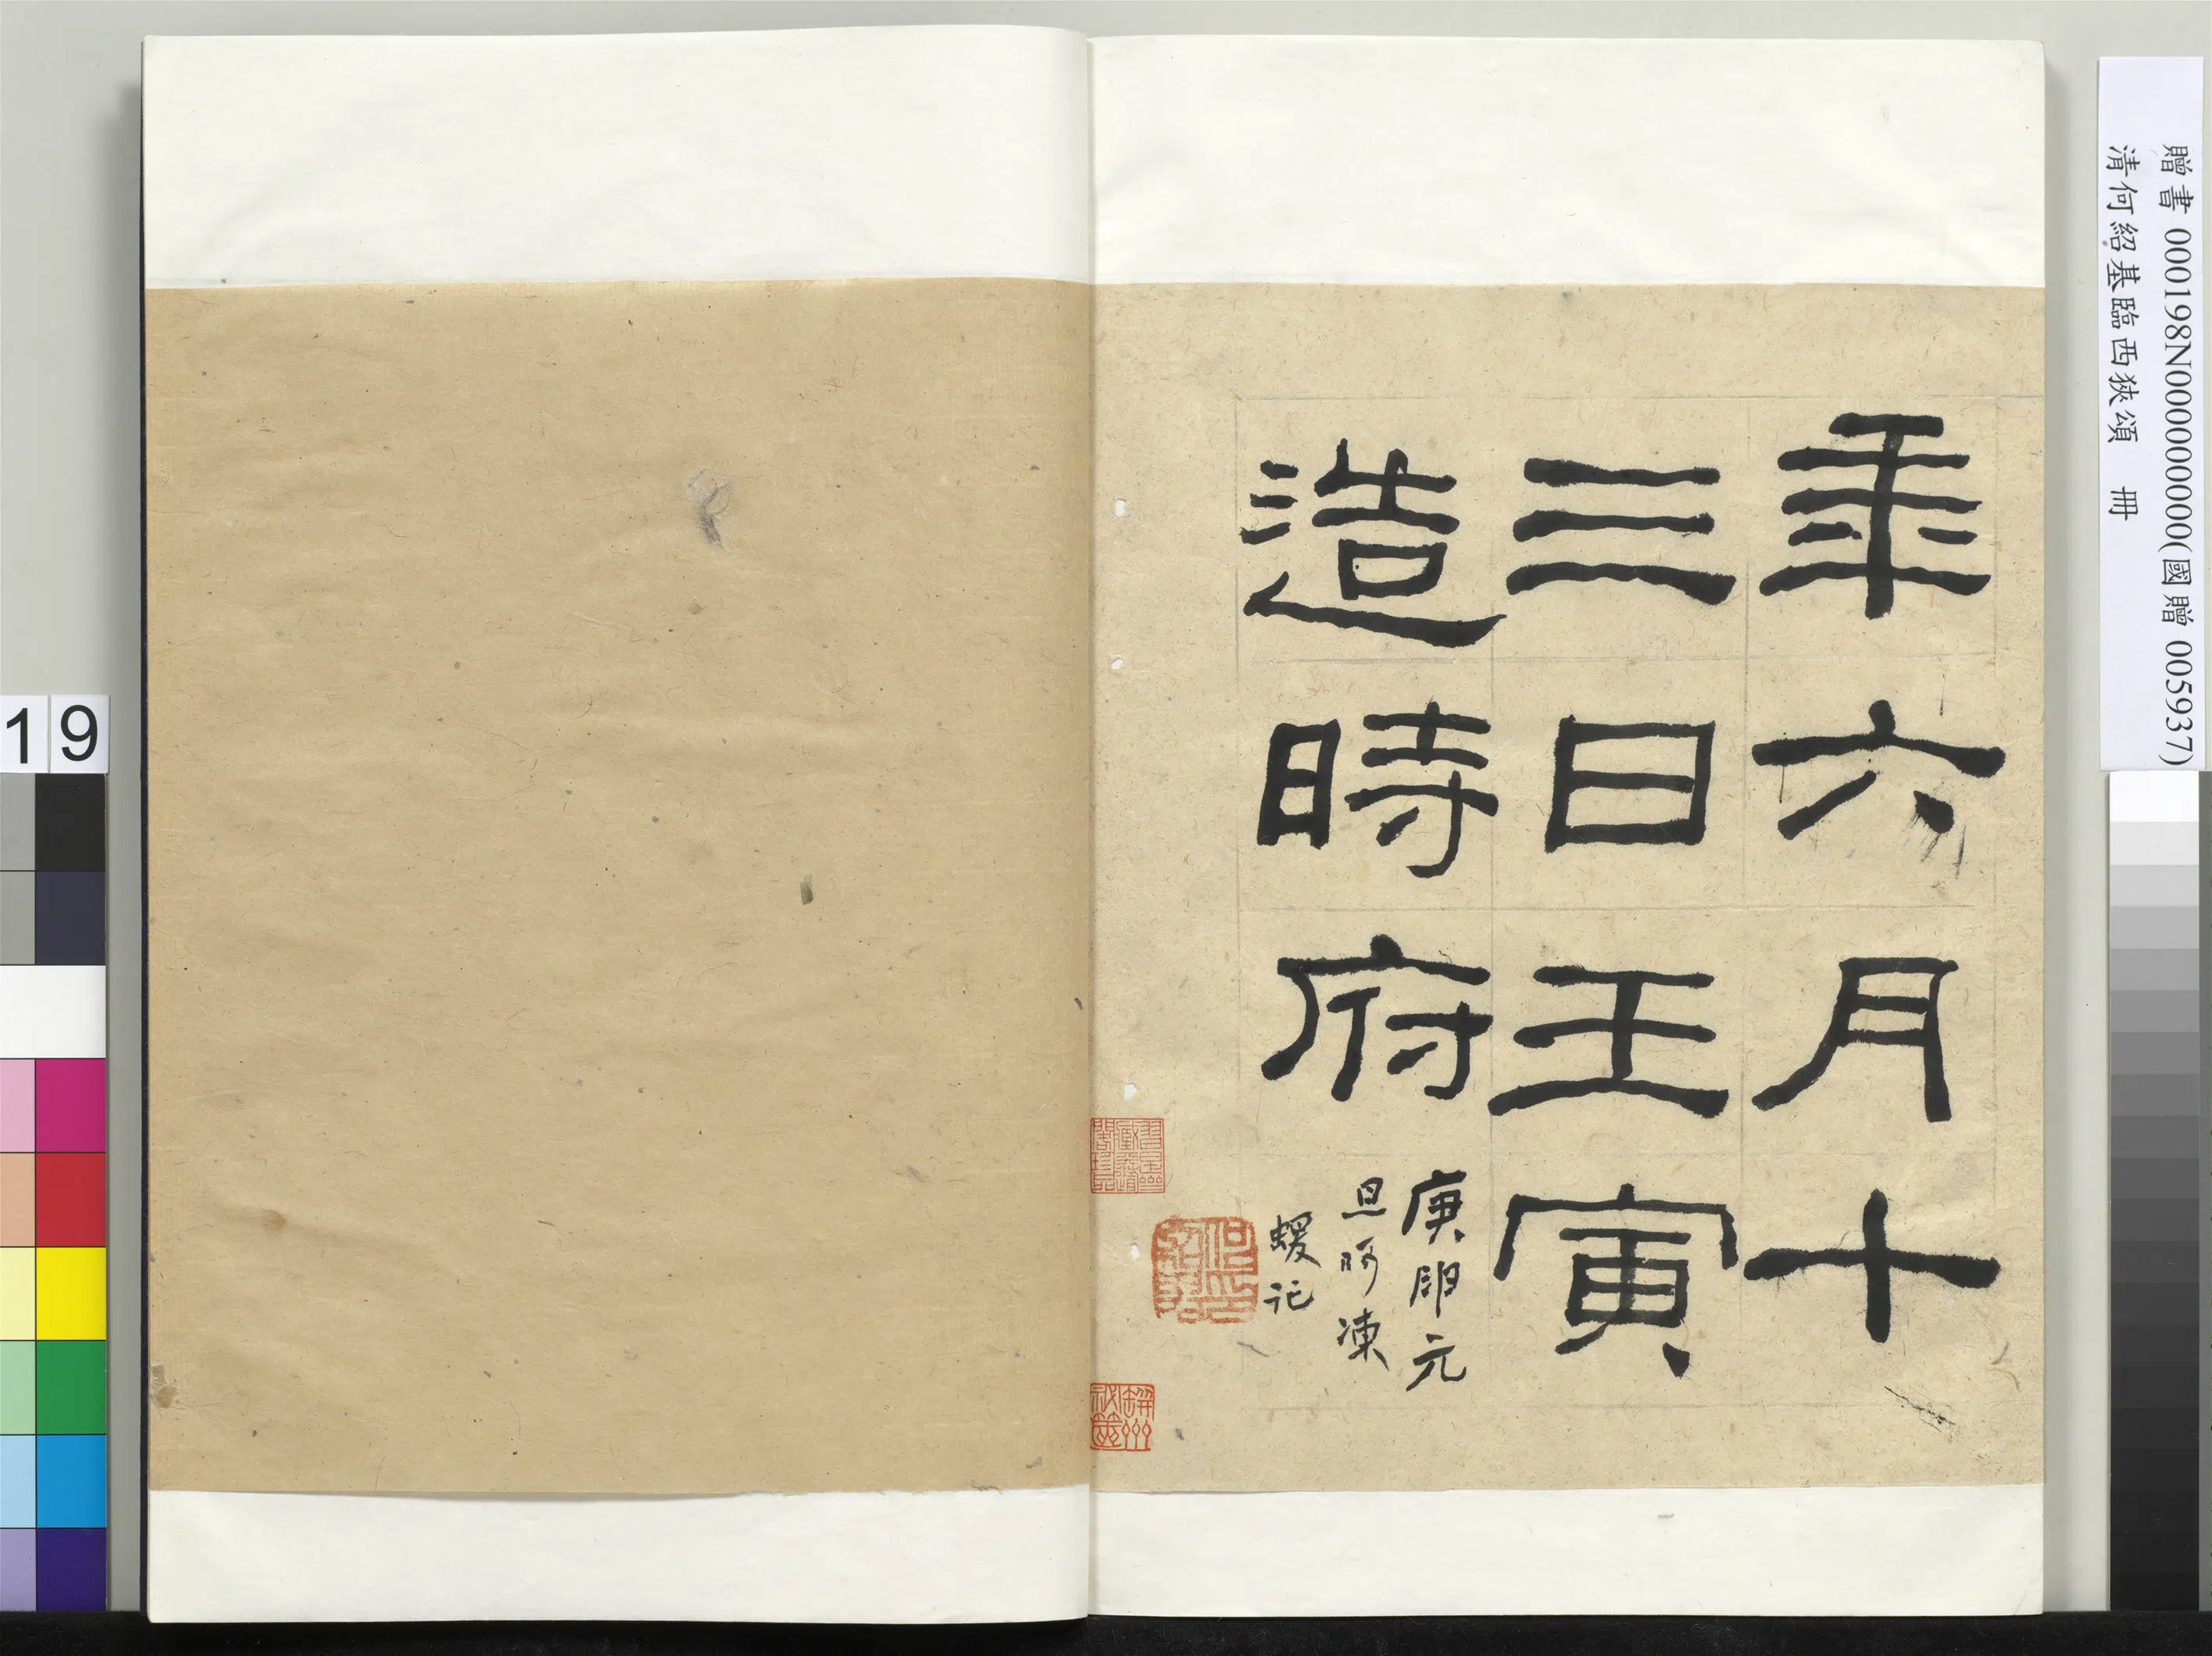 年六月十
三日壬寅
造時府
庚申元
旦呵凍
蝯記
贈書 000198N000000000(國贈 005937)
清何紹基臨西狹頌 冊
19